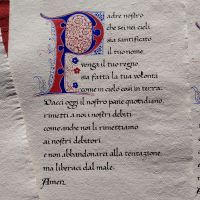 Padre nostro
che sei nei cieli
sia santificato
il tuo nome,
venga il tuo regno
sia fatta la tua volontà
come in cielo così in terra.
Dacci oggi il nostro pane quotidiano,
rimetti a noi i nostri debiti
come anche noi li rimettiamo
ai nostri debitori
e non abbandonarci alla tentazione
ma liberaci dal male.
Amen.